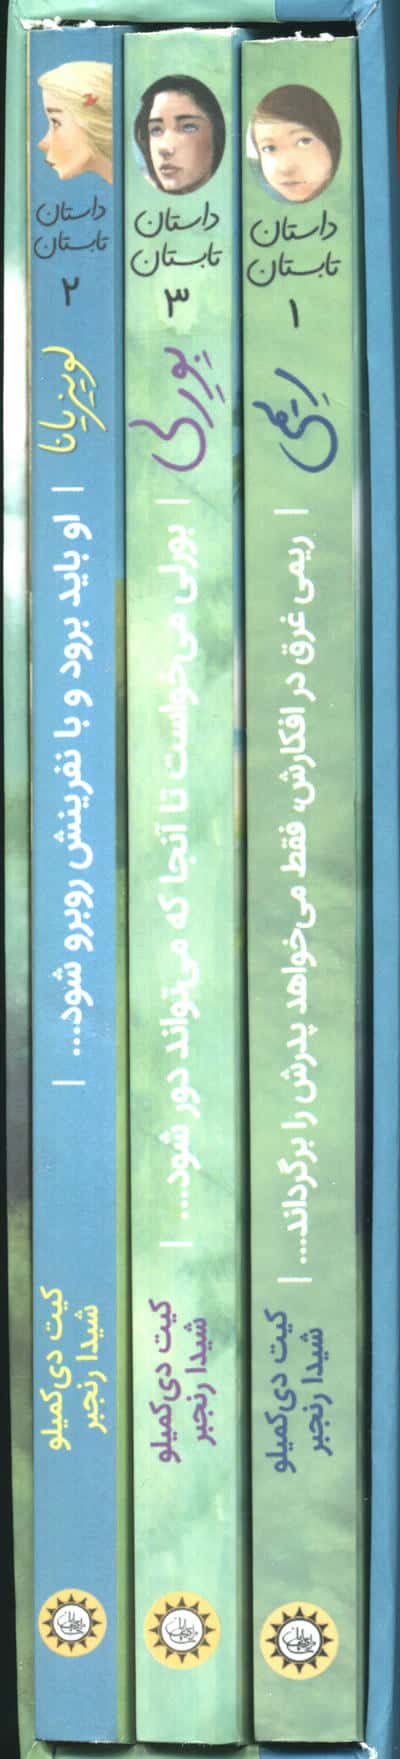 داستان
تابستان
۱
ریمی
| ریمی غرق در افکارش، فقط می‌خواهد پدرش را برگرداند... |
کیت دی‌کمیلو
شیدا رنجبر
داستان
تابستان
۳
بورلی
| بورلی می‌خواست تا آنجا که می‌تواند دور شود... |
کیت دی‌کمیلو
شیدا رنجبر
داستان
تابستان
۲
لوییزیانا
| او باید برود و با نفرینش روبرو شود... |
کیت دی‌کمیلو
شیدا رنجبر